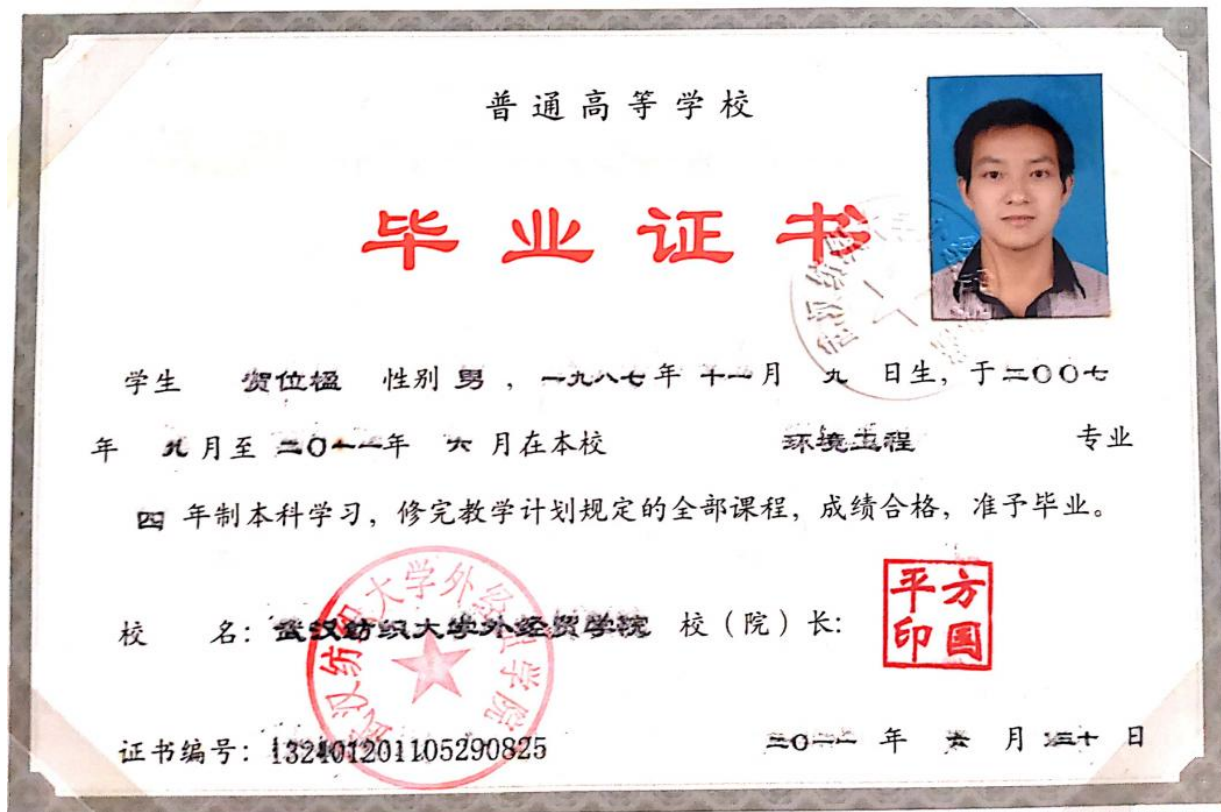 普通高等学校
毕业证书
学生 贺位楹 性别 男 , 一九八七年 十一月 九 日生, 于二〇〇七
年 九月至 二〇一一年 六 月在本校 环境工程 专业
四 年制本科学习, 修完教学计划规定的全部课程, 成绩合格, 准予毕业。
校 名: 武汉纺织大学外经贸学院 校（院）长: 方国平印
武汉纺织大学外经贸学院
证书编号: 132401201105290825 二〇一一 年 六 月 三十 日